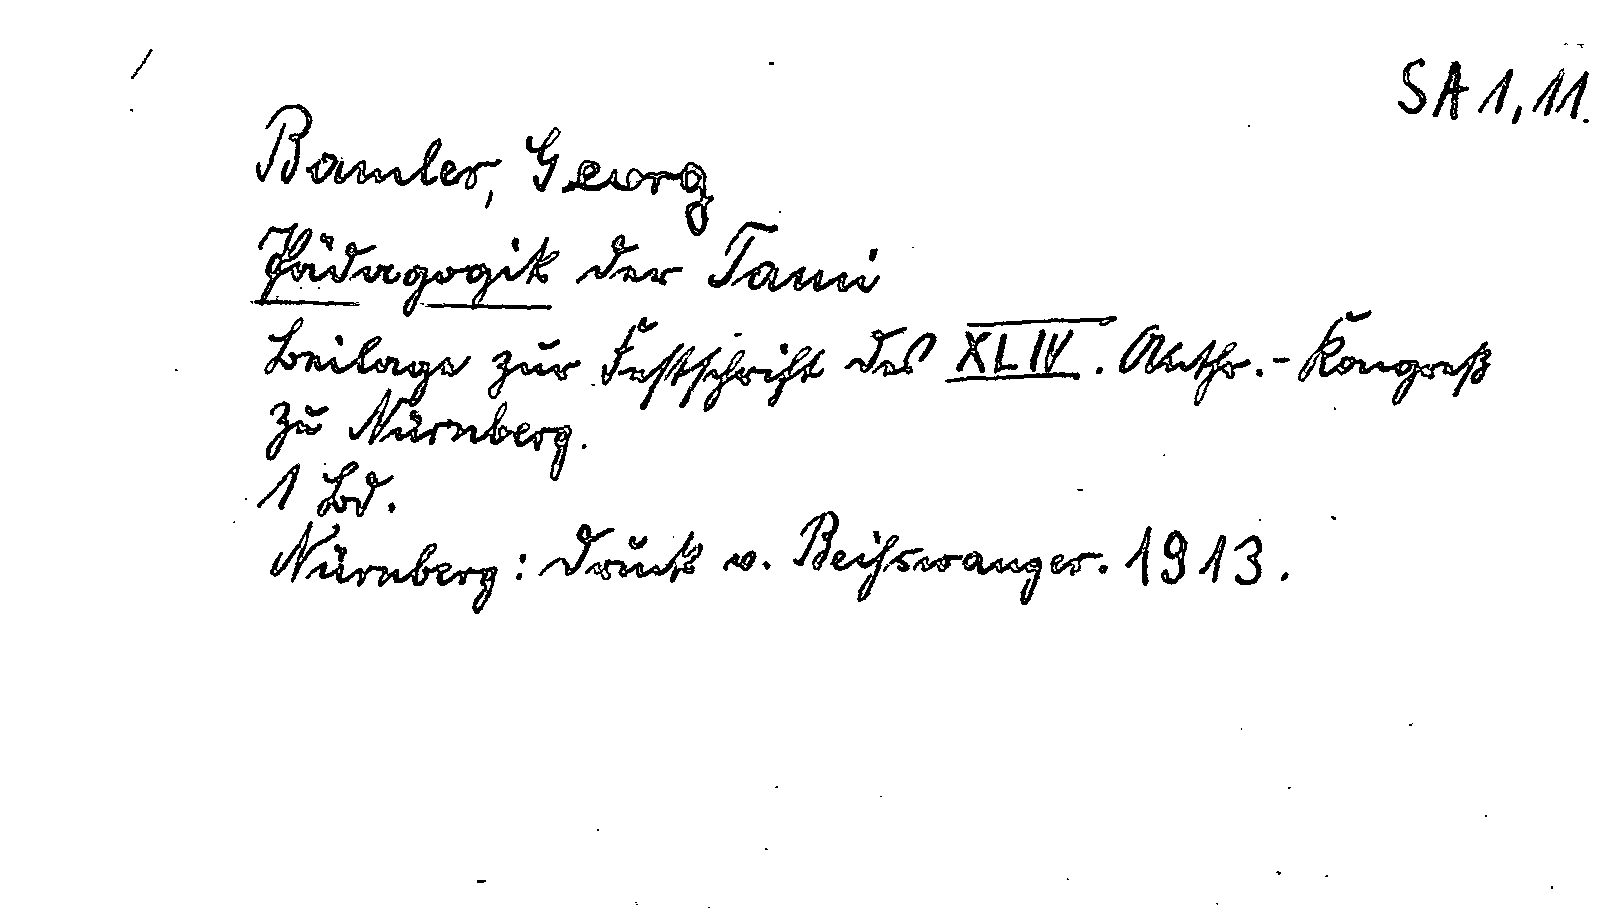 SA 1,11.
Bamler, Georg
Pädagogik der Tami
Beilage zur Festschrift des XLIV. Anthr.-Kongreß
zu Nürnberg.
1 Bd.
Nürnberg: Druck v. Beihswanger. 1913.